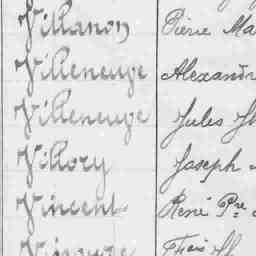 Villanon Pierre Ma
Villeneuve Alexandr
Villeneuve Jules
Villory Joseph
Vincent René Pre